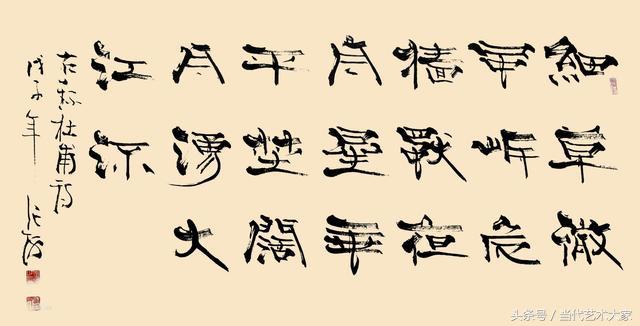 細草微
風岸危
檣獨夜
舟星垂
平埜闊
月湧大
江流
右錄杜甫詩
戊子年
头条号 / 当代艺术大家